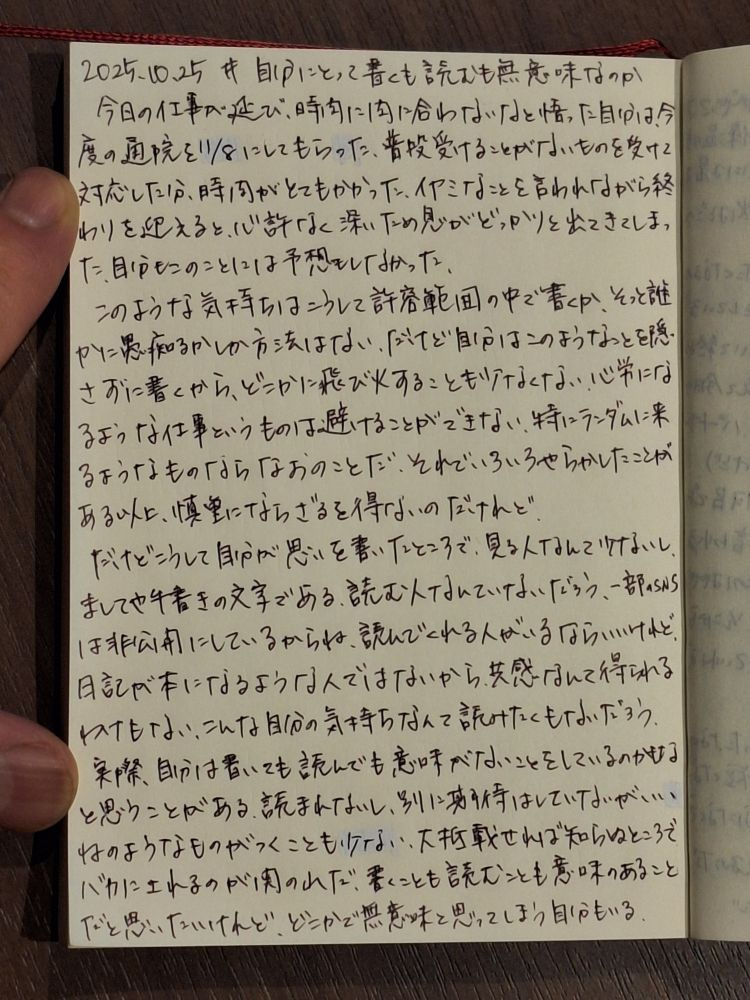 2025.10.25 # 自分にとって書くも読むも無意味なのか
今日の仕事が延び、時間に間に合わないなと悟った自分は、今
度の通院を11/8にしてもらった。普段受けることがないものを受けて
対応した分、時間がとてもかかった。イヤミなことを言われながら終
わりを迎えると、心許なく深いため息がどっかりと出てきてしまっ
た。自分もこのことには予想もしなかった。
このような気持ちはこうして許容範囲の中で書くか、そっと誰
かに愚痴るかしか方法はない。だけど自分はこのようなことを隠
さずに書くから、どこかに飛び火することも少なくない。心労にな
るような仕事というものは避けることができない。特にランダムに来
るようなものならなおのことだ。それでいろいろやらかしたことが
ある以上、慎重にならざるを得ないのだけれど。
だけどこうして自分が思いを書いたところで、見る人なんて少ないし、
ましてや手書きの文字である。読む人なんていないだろう。一部のSNS
は非公開にしているからね。読んでくれる人がいるならいいけれど、
日記が本になるような人ではないから、共感なんて得られる
わけもない。こんな自分の気持ちなんて読みたくもないだろう。
実際、自分は書いても読んでも意味がないことをしているのかもな
と思うことがある。読まれないし、別に期待はしていないがいい
ねのようなものがつくことも少ない。大抵載せれば知らぬところで
バカにされるのが関の山だ。書くことも読むことも意味のあること
だと思いたいけれど、どこかで無意味と思ってしまう自分もいる。